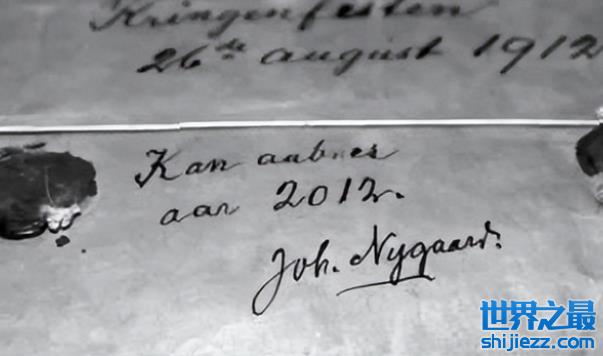 Kringenfesten
26de august 1912
Kan aabnes
aar 2012.
Joh. Nygaard.
世界之最
shijiezz.com